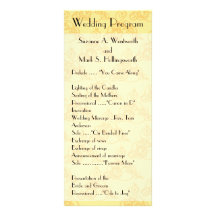 Wedding Program
Suzanne A. Wentworth
and
Mark S. Hollingsworth
Prelude ..... "You Came Along"
Lighting of the Candles
Seating of the Mothers
Processional ...... "Canon in D"
Invocation
Wedding Message ... Rev. Tom
Anderson
Solo ....... "On Bended Knee"
Exchange of vows
Exchange of rings
Announcement of marriage
Solo ............. "Forever More"
Presentation of the
Bride and Groom
Recessional ..... "Ode to Joy"